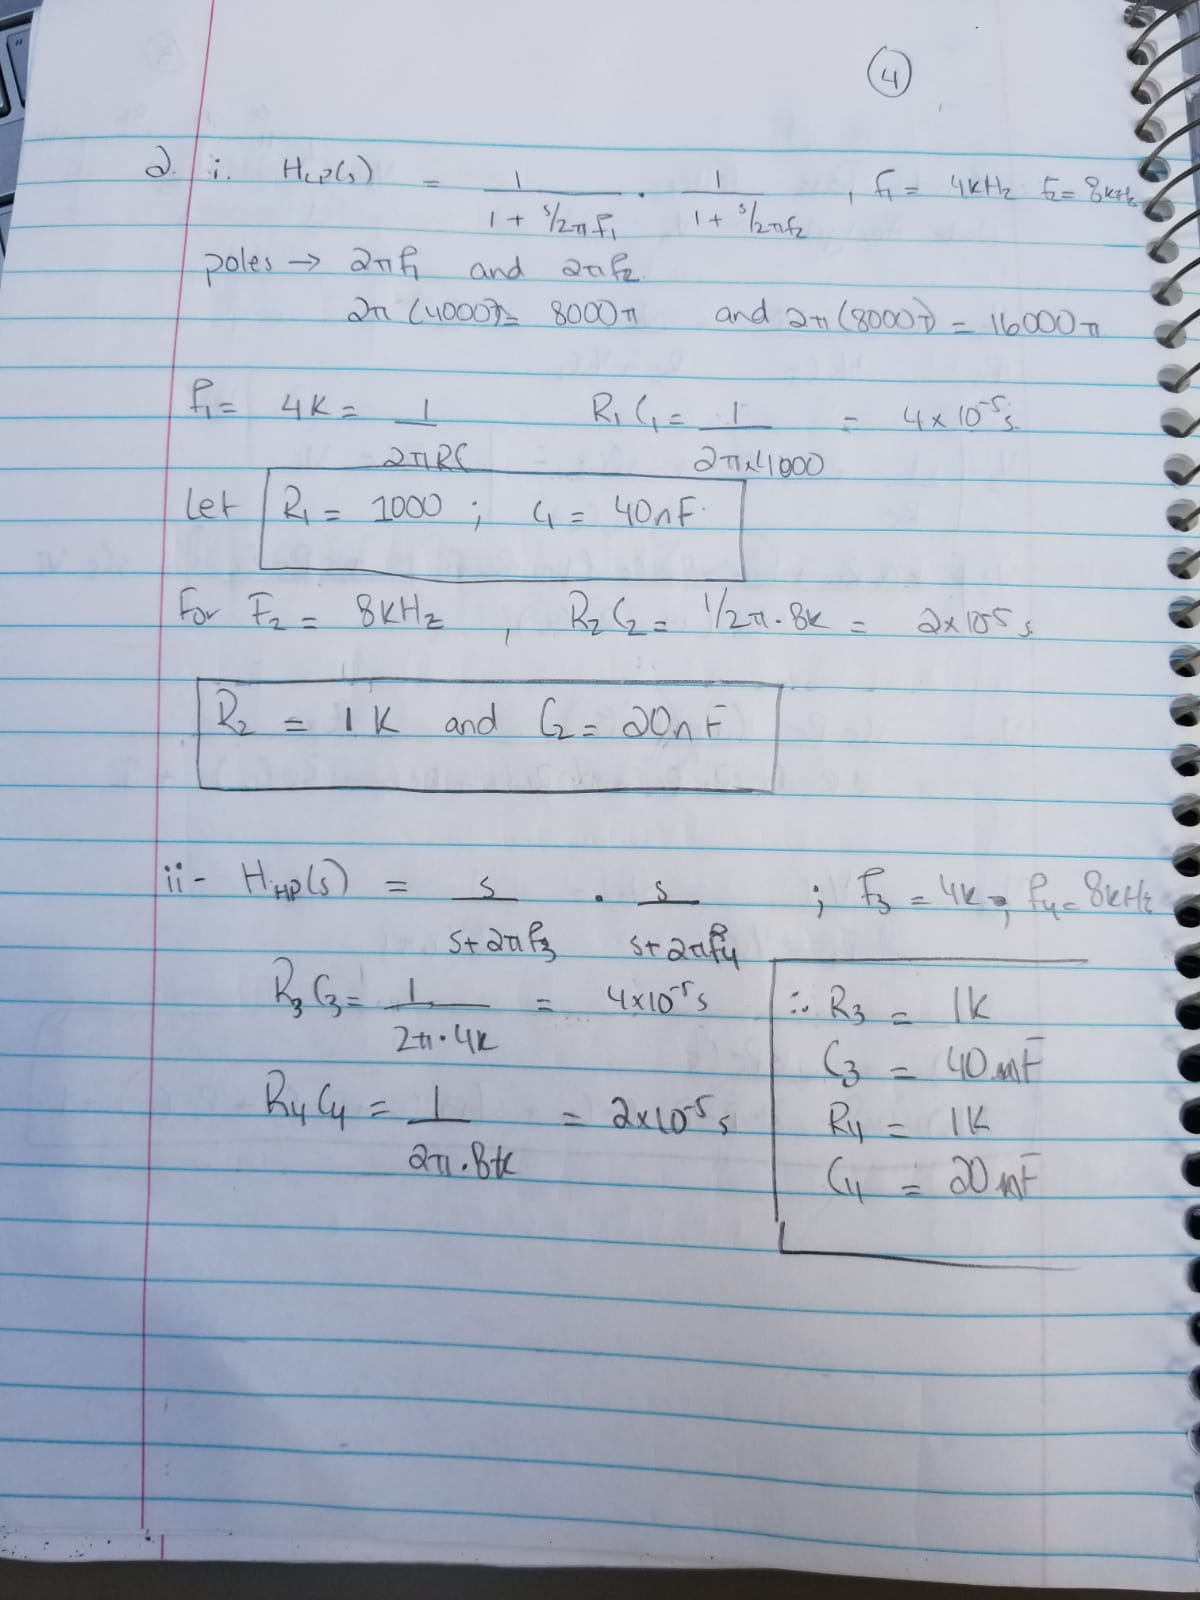 4
2. i. HLP(s) = 1/(1 + s/2πf₁) · 1/(1 + s/2πf₂) , f₁ = 4kHz F₂= 8kHz
poles → 2πf₁ and 2πf₂.
2π (4000) = 8000π and 2π(8000) = 16000π
f₁= 4K = 1/2πRC R₁C₁ = 1/2π×4000 = 4×10⁻⁵s.
Let R₁ = 1000 ; C₁ = 40nF.
For F₂ = 8KHz , R₂C₂ = 1/2π·8K = 2×10⁻⁵ s.
R₂ = 1K and C₂ = 20nF
ii- HHP(s) = s/(s+2πf₃) · s/(s+2πf₄) ; f₃ = 4k, f₄= 8kHz
R₃C₃ = 1/2π·4k = 4×10⁻⁵s
∴ R₃ = 1K
C₃ = 40nF
R₄C₄ = 1/2π·8k = 2×10⁻⁵ s
R₄ = 1K
C₄ = 20nF